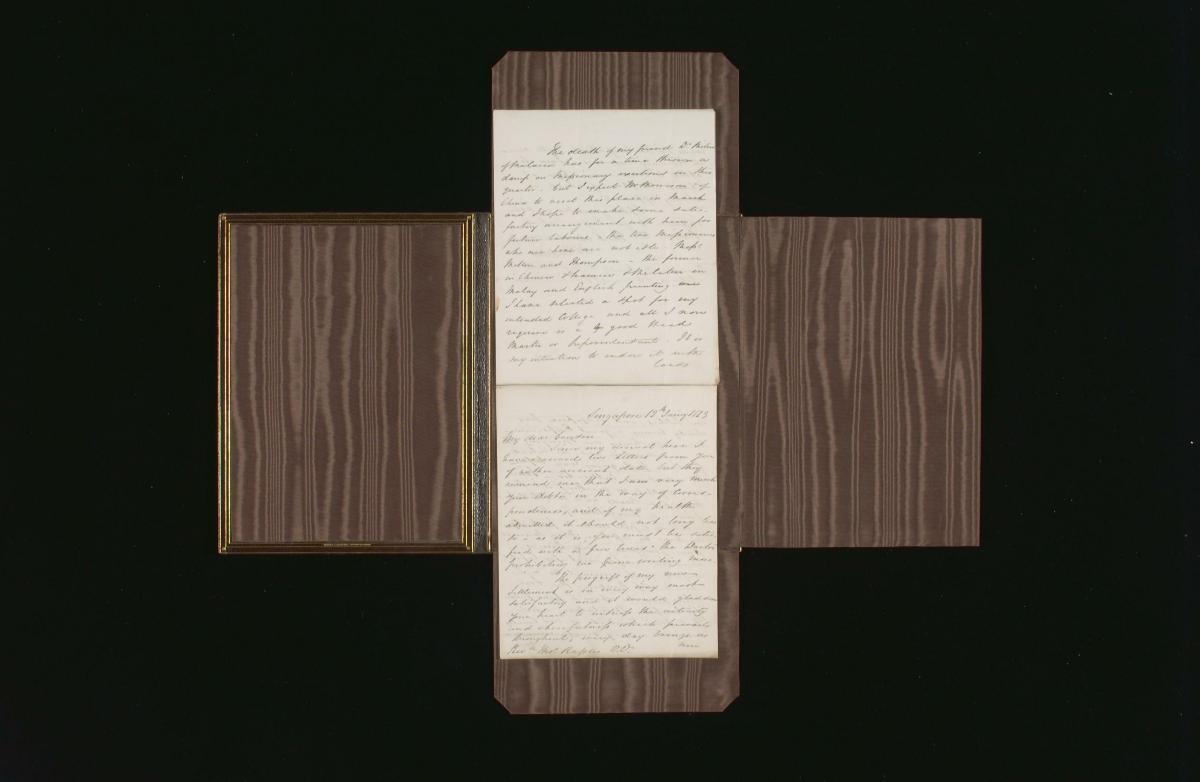 The death of my friend Dr. Milne
of Malacca has for a time thrown a
damp on Missionary exertions in this
quarter. but I expect Mr Morrison of
China to visit this place in March
and I hope to make some satis-
factory arrangement with him for
future labours – the two Missionaries
who are here are not idle Messrs.
Milton and Thompson – the former
in Chinese & Siamese & the latter in
Malay and English printing
I have selected a spot for my
intended College and all I now
require is a good Head
Master or Superintendant. It is
my intention to endow it with
Lands
Singapore 12th Jany 1823
My dear Cousin
Since my arrival here I
have received two Letters from you
of rather ancient date but they
remind me that I am very much
your debtor in the way of Corres-
pondence, and if my health
admitted it should not long be
so: as it is you must be satis-
fied with a few lines. the Doctor
prohibiting me from writing more
The progress of my new
Settlement is in every way most
satisfactory and it would gladden
your heart to witness the activity
and cheerfulness which prevails
throughout; every day brings us
Revd. Thos. Raffles D.D.
new